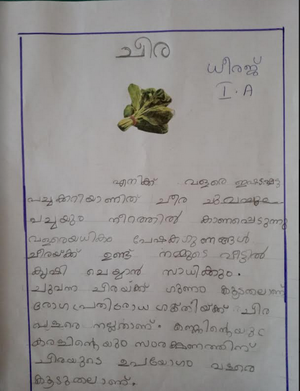 ചീര
ധീരജ്
I. A
എനിക്ക് വളരെ ഇഷ്ടമുള്ള
പച്ചക്കറിയാണിത് ചീര ചുവപ്പും
പച്ചയും നിറത്തിൽ കാണപ്പെടുന്നു
വളരെയധികം പോഷകഗുണങ്ങൾ
ചീരയ്ക്ക് ഉണ്ട് നമ്മുടെ വീട്ടിൽ
കൃഷി ചെയ്യാൻ സാധിക്കും.
ചുവന്ന ചീരയ്ക്ക് ഗുണം കൂടുതലാണ്
രോഗപ്രതിരോധ ശക്തിയ്ക്ക് ചീര
വളരെ നല്ലതാണ്. കണ്ണിന്റെയും
കരളിന്റെയും സംരക്ഷണത്തിന്
ചീരയുടെ ഉപയോഗം വളരെ
കൂടുതലാണ്.